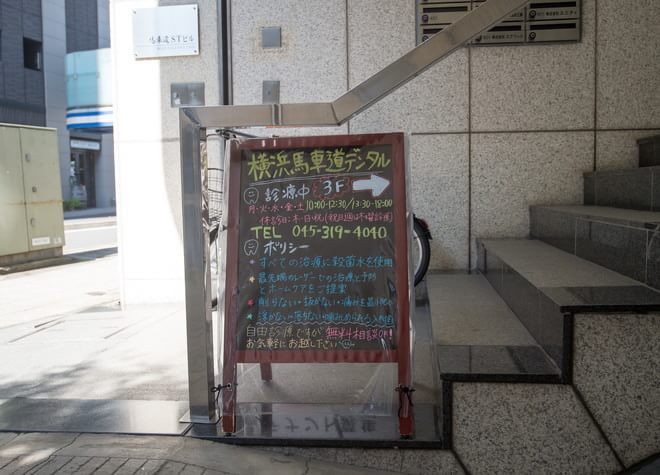 馬車道STビル
横浜馬車道デンタル
診療中 3F
月・火・水・金・土 10:00-12:30/13:30-18:00
休診日:木・日・祝(祝日週は木曜診療)
TEL 045-319-4040
ポリシー
すべての治療に殺菌水を使用
最先端のレーザーでの治療と予防
とホームケアをご提案
削らない・抜かない・痛みを最小限に
浮かない・落ちない・噛みしめられる入れ歯
自由診療ですが 無料相談OK!
お気軽にお越し下さい